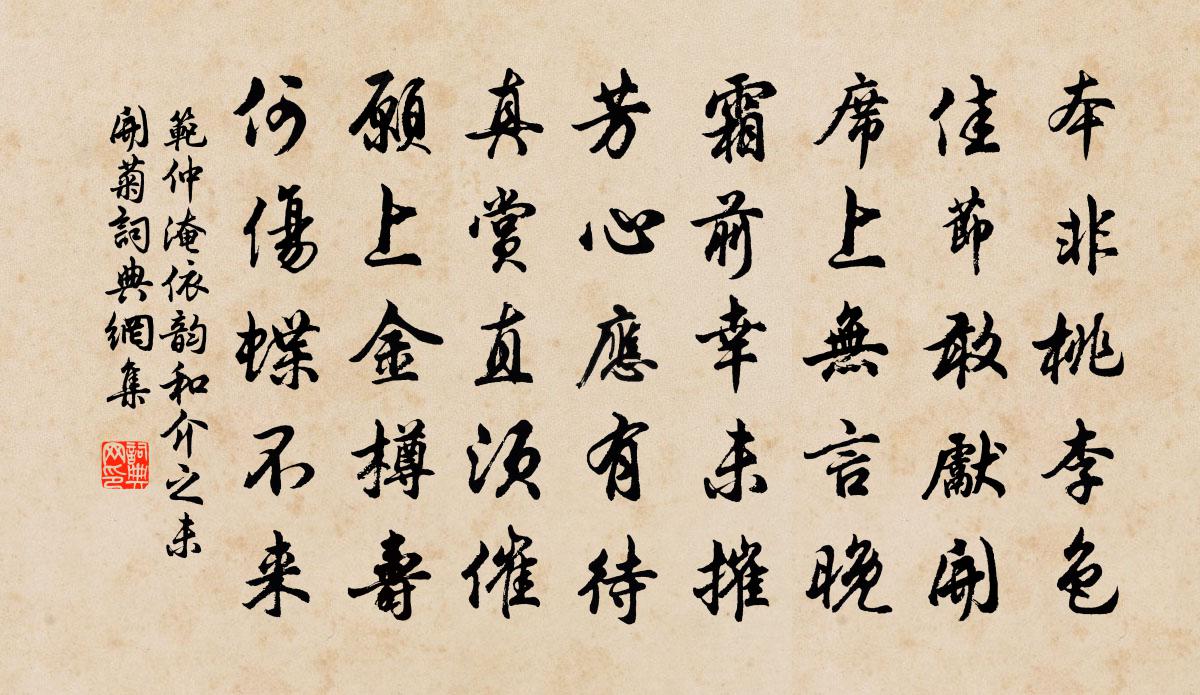 本非桃李色
佳節敢獻開
席上無言晚
霜前幸未摧
芳心應有待
真賞直須催
願上金樽壽
何傷蝶不来
範仲淹依韵和介之未
開菊詞典網集
詞典
网印